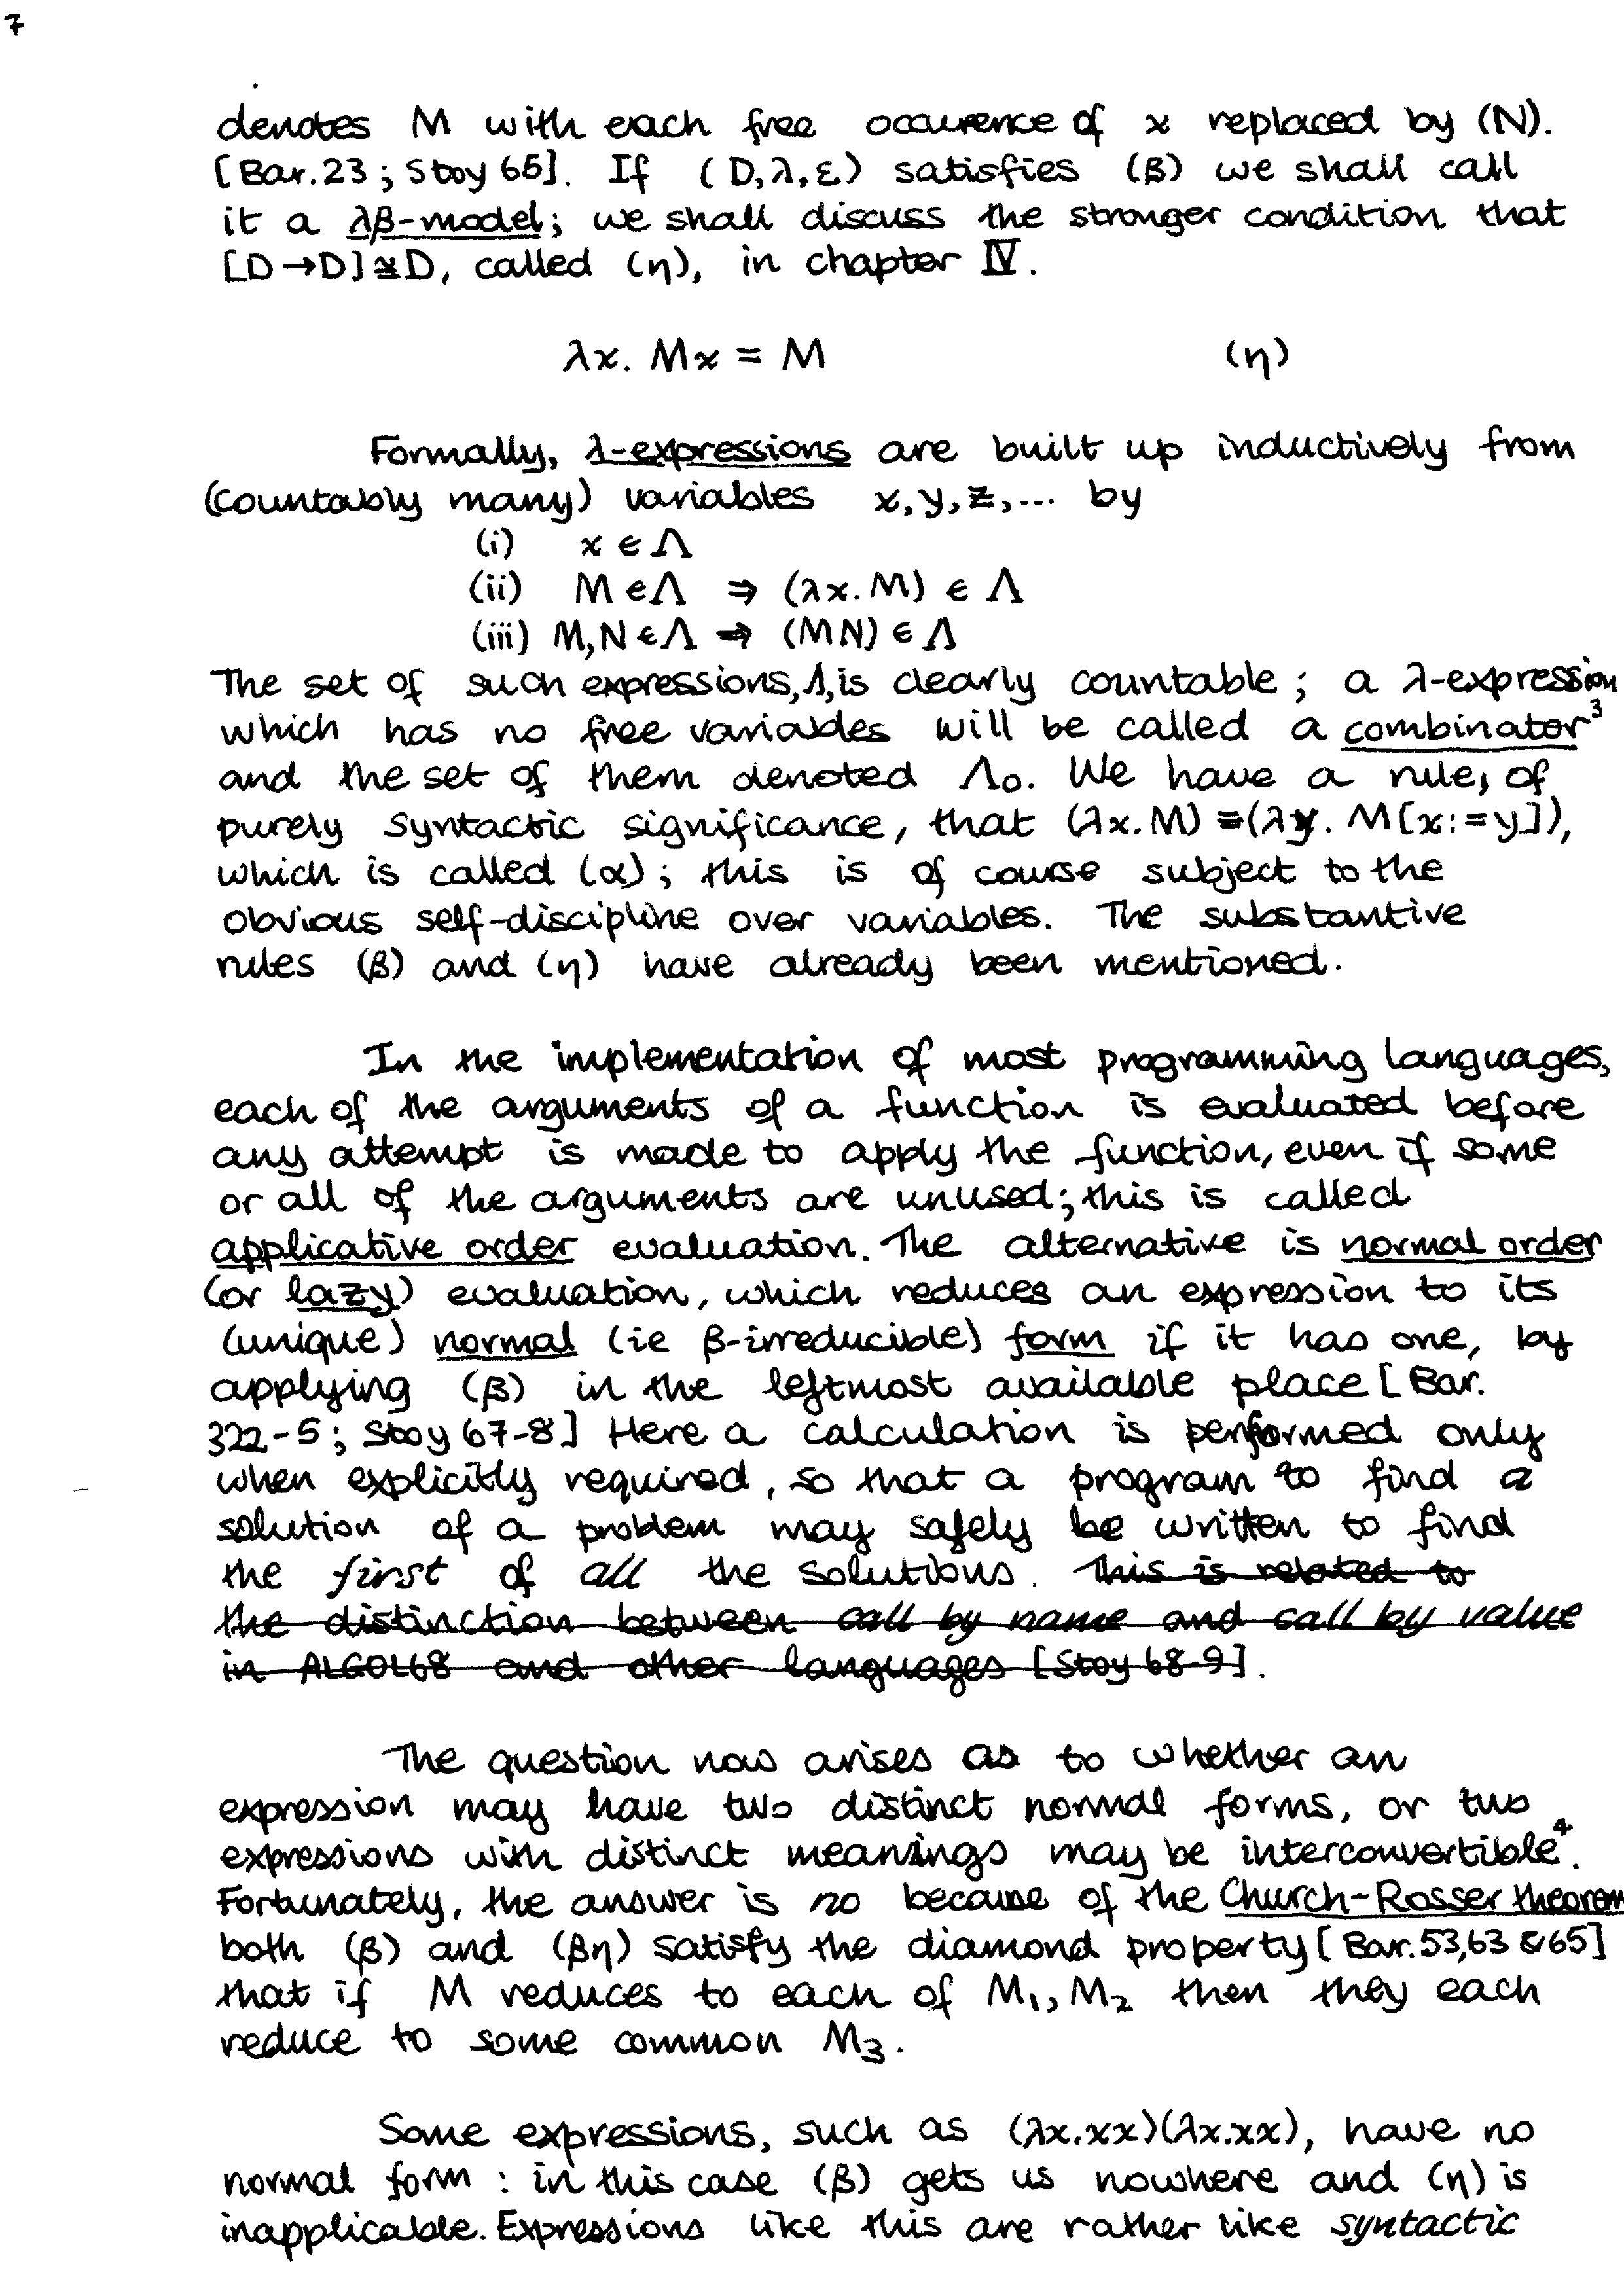 7
denotes M with each free occurence of x replaced by (N).
[Bar.23; Stoy 65]. If (D,λ,ε) satisfies (β) we shall call
it a λβ-model; we shall discuss the stronger condition that
[D→D]≅D, called (η), in chapter IV.
λx. Mx = M (η)
Formally, λ-expressions are built up inductively from
(countably many) variables x,y,z,... by
(i) x ∈ Λ
(ii) M ∈ Λ ⇒ (λx.M) ∈ Λ
(iii) M,N ∈ Λ ⇒ (MN) ∈ Λ
The set of such expressions, Λ, is clearly countable; a λ-expression
which has no free variables will be called a combinator³
and the set of them denoted Λ₀. We have a rule, of
purely syntactic significance, that (λx.M) ≡ (λy. M[x:=y]),
which is called (α); this is of course subject to the
obvious self-discipline over variables. The substantive
rules (β) and (η) have already been mentioned.
In the implementation of most programming languages,
each of the arguments of a function is evaluated before
any attempt is made to apply the function, even if some
or all of the arguments are unused; this is called
applicative order evaluation. The alternative is normal order
(or lazy) evaluation, which reduces an expression to its
(unique) normal (ie β-irreducible) form if it has one, by
applying (β) in the leftmost available place [Bar.
322-5; Stoy 67-8] Here a calculation is performed only
when explicitly required, so that a program to find a
solution of a problem may safely be written to find
the first of all the solutions. This is related to
the distinction between call by name and call by value
in ALGOL68 and other languages [Stoy 68-9].
The question now arises as to whether an
expression may have two distinct normal forms, or two
expressions with distinct meanings may be interconvertible⁴.
Fortunately, the answer is no because of the Church-Rosser theorem
both (β) and (βη) satisfy the diamond property [Bar.53,63 & 65]
that if M reduces to each of M₁, M₂ then they each
reduce to some common M₃.
Some expressions, such as (λx.xx)(λx.xx), have no
normal form : in this case (β) gets us nowhere and (η) is
inapplicable. Expressions like this are rather like syntactic